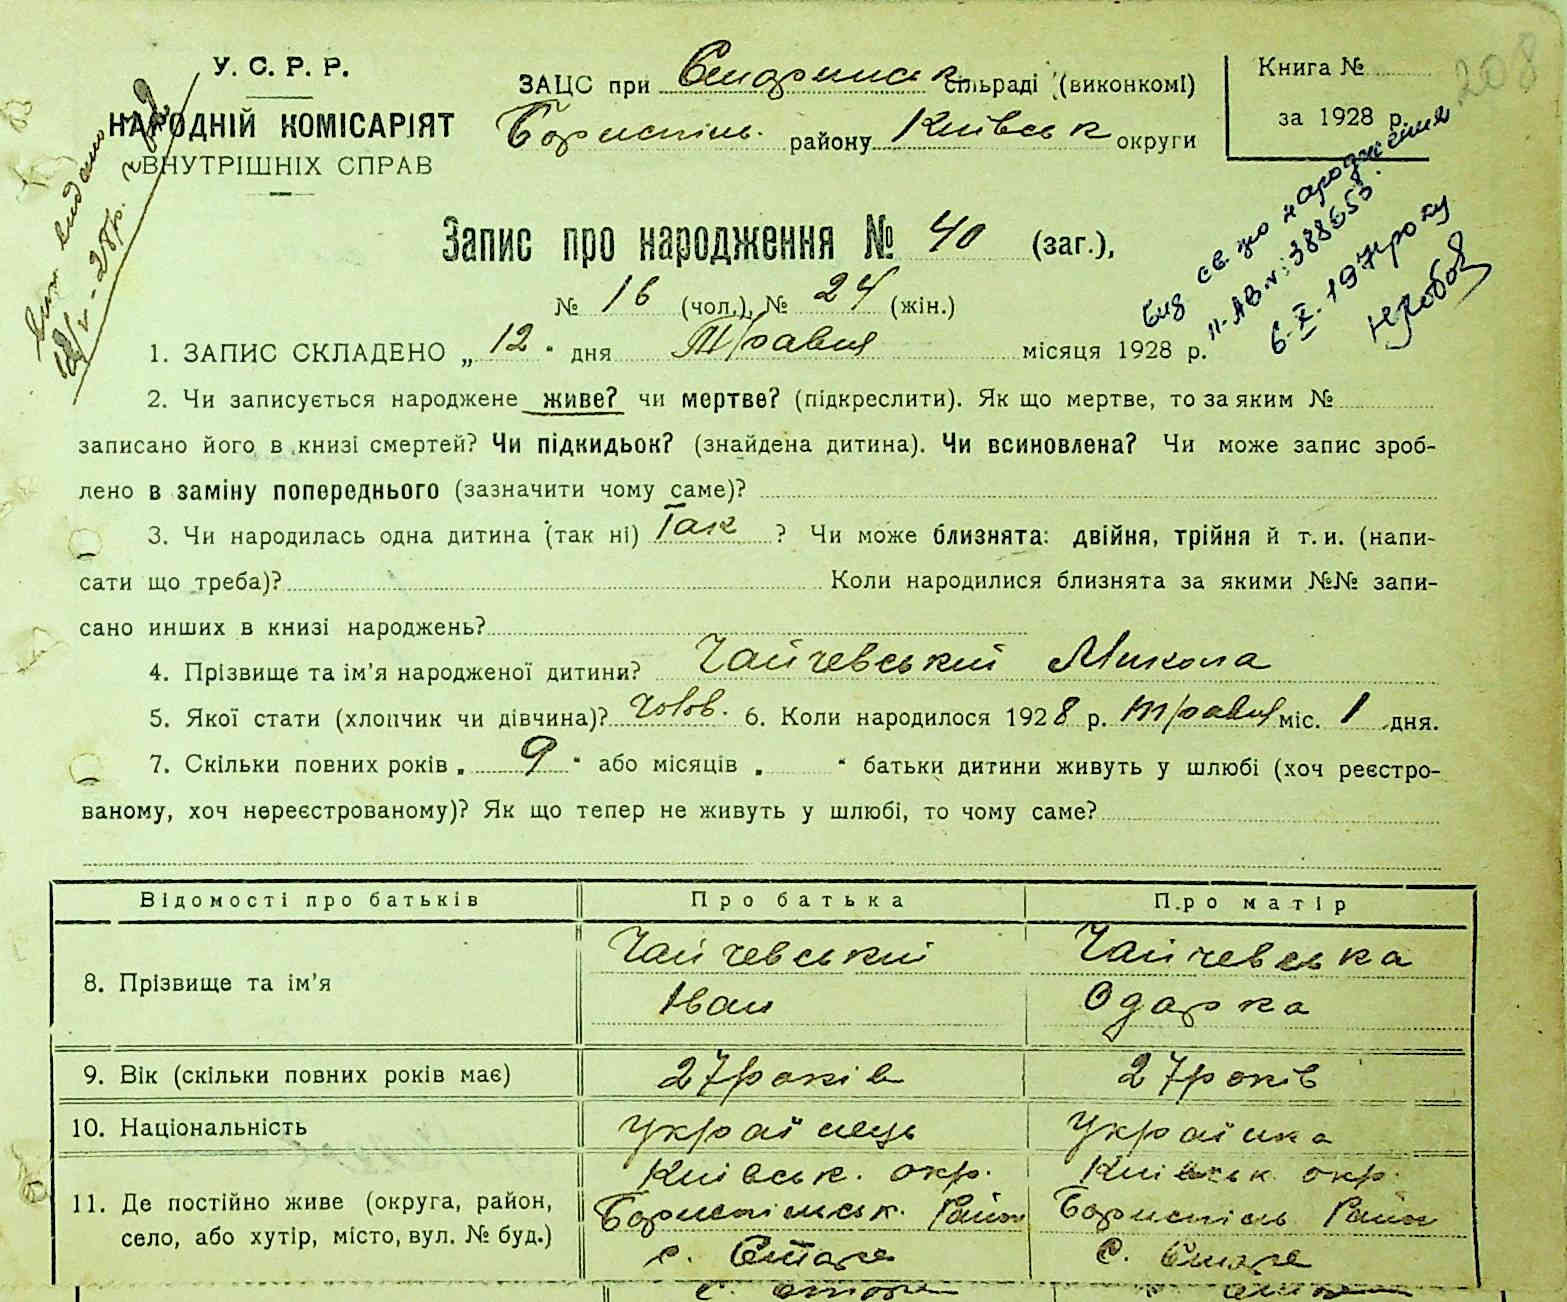 208
У. С. Р. Р.
НАРОДНІЙ КОМІСАРІЯТ
ВНУТРІШНІХ СПРАВ
ЗАЦС при сільраді (виконкомі)
Бориспіль. району Київськ округи
Книга №
за 1928 р.
Запис про народження № 40 (заг.),
№ 16 (чол.), № 24 (жін.)
Вид св. про народження
II-АВ №: 388653.
6. X. 197 року
1. ЗАПИС СКЛАДЕНО „ 12 " дня Травня місяця 1928 р.
2. Чи записується народжене живе? чи мертве? (підкреслити). Як що мертве, то за яким №
записано його в книзі смертей? Чи підкидьок? (знайдена дитина). Чи всиновлена? Чи може запис зроб-
лено в заміну попереднього (зазначити чому саме)?
3. Чи народилась одна дитина (так ні) Так ? Чи може близнята: двійня, трійня й т. и. (напи-
сати що треба)? Коли народилися близнята за якими №№ запи-
сано инших в книзі народжень?
4. Прізвище та ім'я народженої дитини? Чайчевський Микола
5. Якої стати (хлопчик чи дівчина)? Чолов. 6. Коли народилося 1928 р. Травня міс. 1 дня.
7. Скільки повних років „ 9 " або місяців „ " батьки дитини живуть у шлюбі (хоч реєстро-
ваному, хоч нереєстрованому)? Як що тепер не живуть у шлюбі, то чому саме?
Відомості про батьків Про батька Про матір
8. Прізвище та ім'я Чайчевський Чайчевська
Іван Одарка
9. Вік (скільки повних років має) 27 років 27 років
10. Національність Українець Українка
11. Де постійно живе (округа, район, Київськ. окр. Київськ. окр.
село, або хутір, місто, вул. № буд.) Бориспільськ. Район Бориспіль Район
с. Старе с. Старе